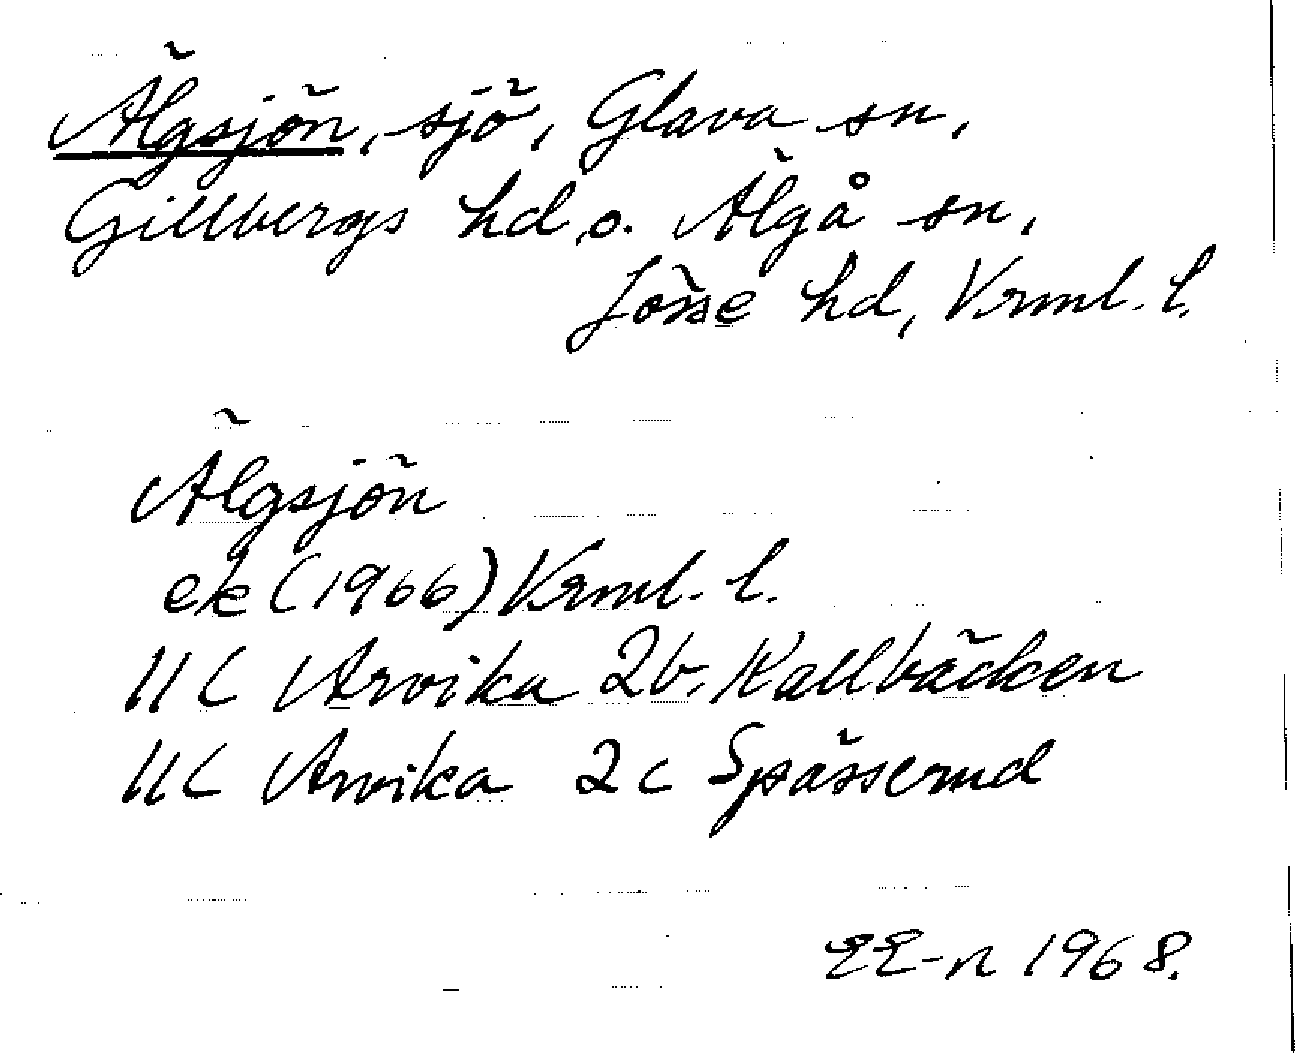 Älgsjön, sjö, Glava sn,
Gillbergs hd o. Älgå sn,
Jösse hd, Vrml. l.
Älgsjön
ek (1966) Vrml. l.
11C Arvika 2b. Kallbäcken
11C Arvika 2c Spässerud
EE-n 1968.